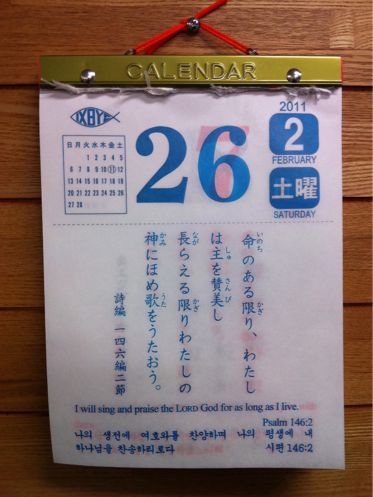 CALENDAR
IXΘYE
2011
日 月 火 水 木 金 土
1 2 3 4 5
6 7 8 9 10 11 12
13 14 15 16 17 18 19
20 21 22 23 24 25 26
27 28
26
2
FEBRUARY
土曜
SATURDAY
命のある限り、わたし
は主を賛美し
長らえる限りわたしの
神にほめ歌をうたおう。
詩編 一四六編二節
I will sing and praise the LORD God for as long as I live.
Psalm 146:2
나의 생전에 여호와를 찬양하며 나의 평생에 내
하나님을 찬송하리로다 시편 146:2